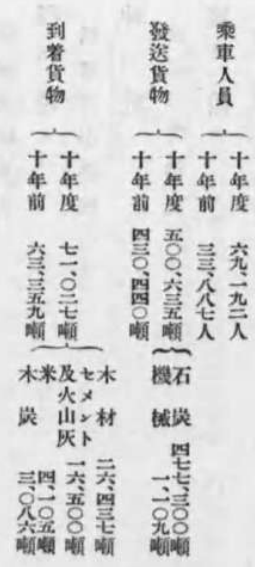 乘車人員
十年度 六九、一九二人
十年前 三三、八八七人
發送貨物
十年度 五〇〇、六三五噸
十年前 四三〇、四四〇噸
石炭 四七七、三〇〇噸
機械 一、一〇九噸
到着貨物
十年度 七一、〇二七噸
十年前 六三、三五九噸
木材 二六、四三七噸
セメント及火山灰 一六、五〇〇噸
米 四、一〇五噸
木炭 三、〇八六噸